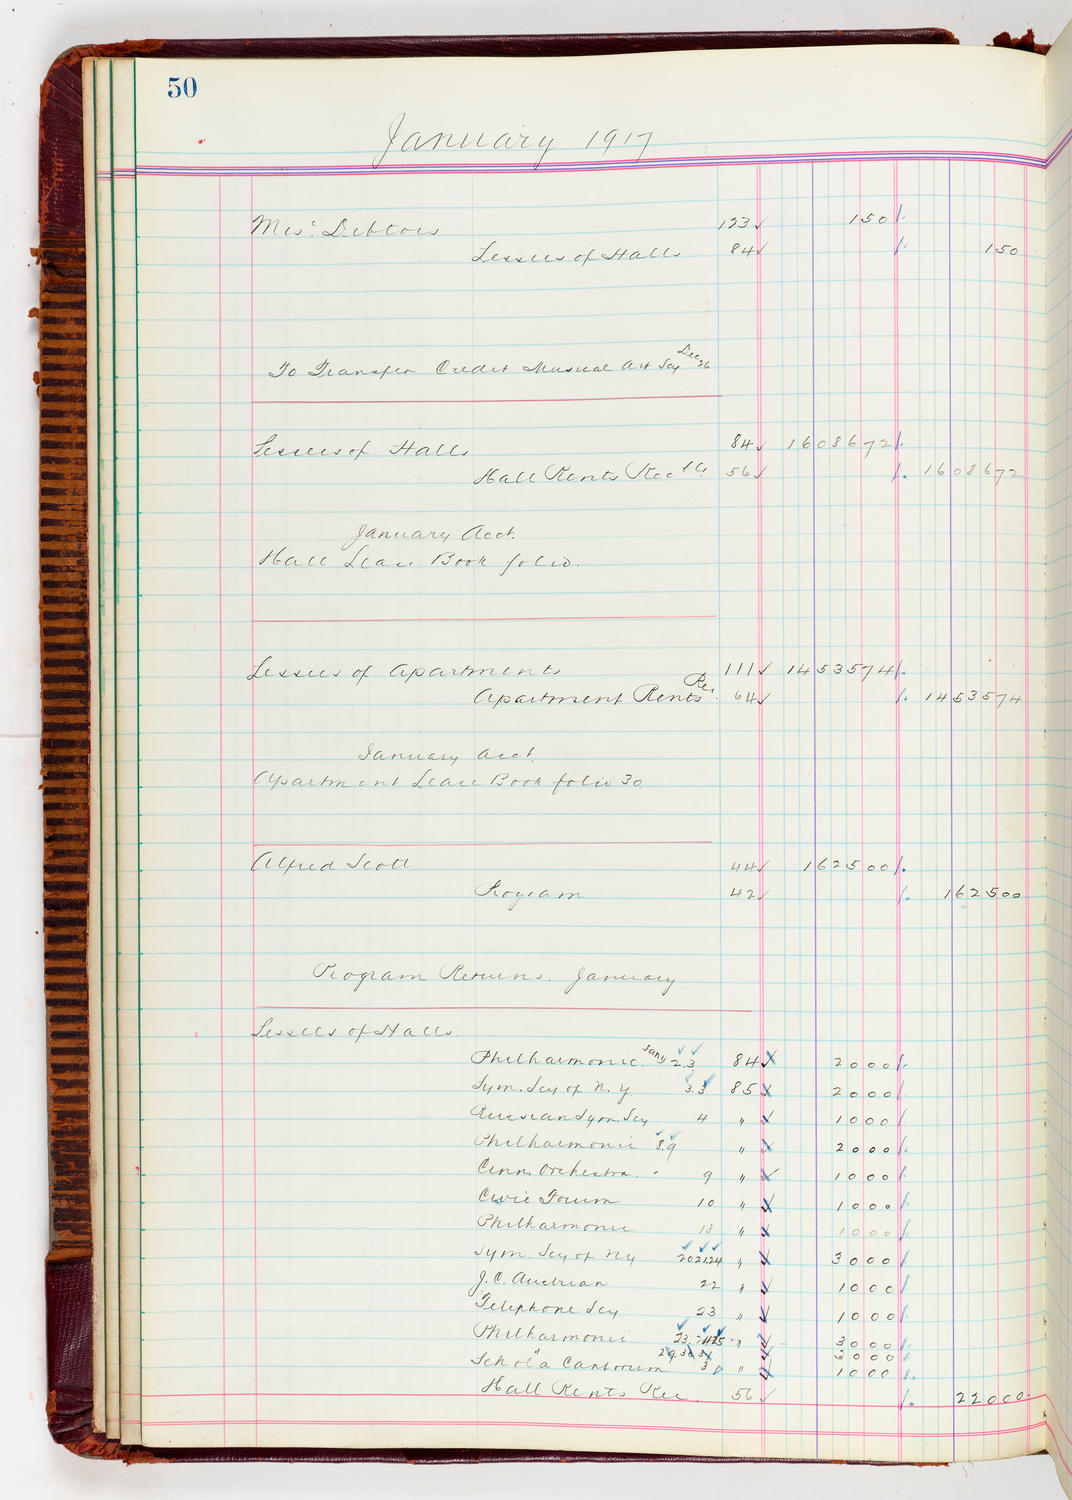 50
January 1917
Misc. Debtors 123 ✓ 150 /.
Lessees of Halls 84 ✓ /. 150
To Transfer Credit Musical Art Scy Dec 26
Lessees of Halls 84 ✓ 1608672 /.
Hall Rents Rec 56 ✓ /. 1608672
January Acct.
Hall Lease Book folio.
Lessees of Apartments 111 ✓ 1453574 /.
Apartment Rents Rec. 64 ✓ /. 1453574
January Acct.
Apartment Lease Book folio 30
Alfred Scott 44 ✓ 162500 /.
Program 42 ✓ /. 162500
Program Returns. January
Lessees of Halls
Philharmonic. Jany 2.3 84 2000 /.
Sym. Scy of N.Y. 3.3 85 2000 /
Russian Sym Scy 4 " 1000 /
Philharmonic 8.9 " 2000 /.
Cinn. Orchestra. 9 " 1000 /.
Civic Forum 10 " 1000 /.
Philharmonic 13 " 1000 /.
Sym. Scy of NY 20 21 24 " 3000 /.
J.C. Austrian 22 " 1000 /
Telephone Scy 23 " 1000 /.
Philharmonic 23. 24 25 " 3000 /.
29. 30 31 3000
Schola Cantorum 30 " 1000
Hall Rents Rec. 56 ✓ /. 22000